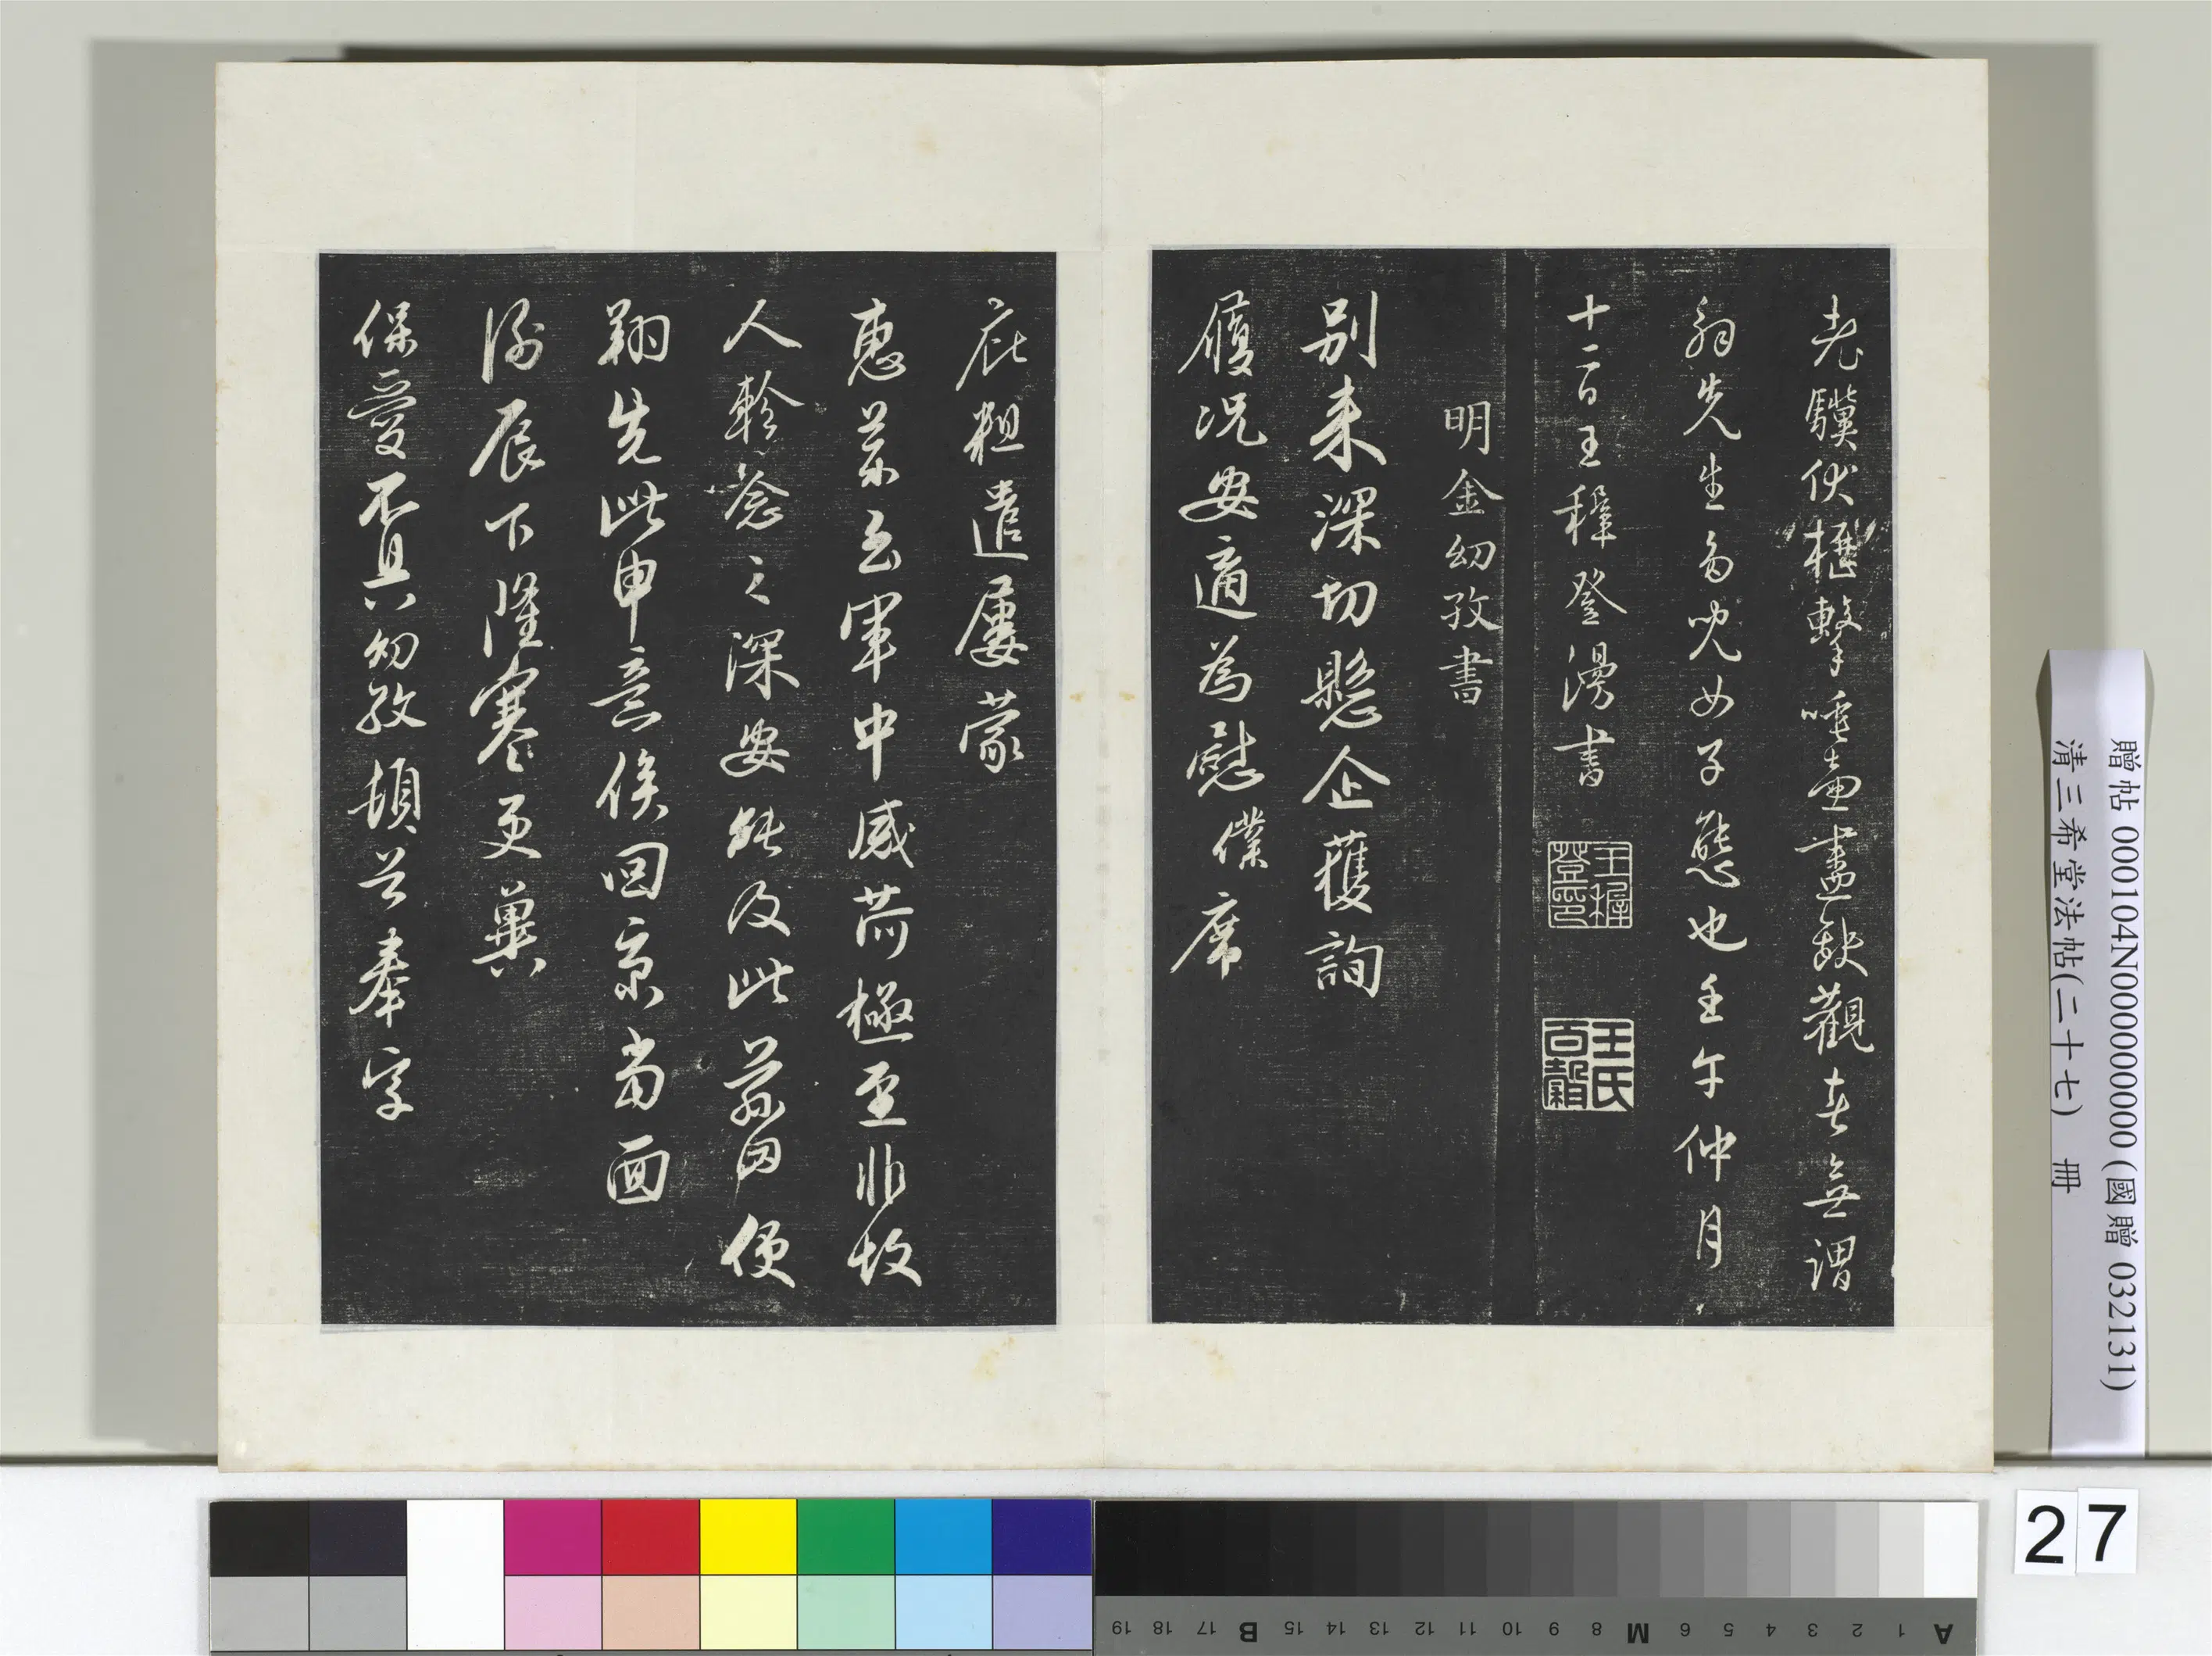 老驥伏櫪擊唾壺盡缺觀者無謂
翁先生多兒女子態也壬午仲月
十二日王穉登漫書
王穉登印
王氏百穀
明金幼孜書
別來深切懸企獲詢
履況安適為慰僕席
庇粗遣屢蒙
惠茶至軍中感荷極至非故
人軫念之深安能及此茲因便
翔先此申意俟回京當面
謝辰下隆寒更冀
保愛不具幼孜頓首奉字
贈帖 000104N000000000 (國贈 032131)
清三希堂法帖(二十七) 冊
27
A 1 2 3 4 5 6 M 8 9 10 11 12 13 14 15 B 17 18 19